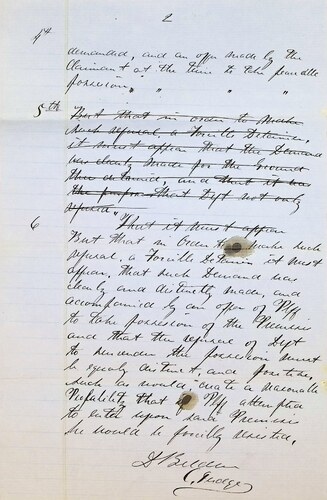 2
4th
demanded, and an offer made by the
Claimant at the time to take peaceable
possession, " " " "
5th But that in order to make
such refusal, a Forcible Detainer,
it must appear that the Demand
was clearly made for the Ground
then detained, and that it was
the purpose that Deft not only
refused
6 That it must appear
But that in order to make such
refusal, a Forcible Detainer it must
appear, that such Demand was
clearly and distinctly made, and
accompanied by an offer of Plff
to take possession of the Premises
and that the refusal of Deft
to surrender the possession must
be equally distinct, and positive,
such as would create a reasonable
Probability that if Plff attempted
to enter upon said Premises
he would be forcibly resisted,
Judge